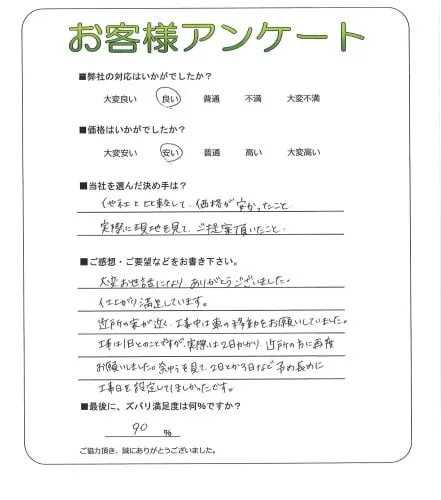 お客様アンケート
■弊社の対応はいかがでしたか？
大変良い 良い 普通 不満 大変不満
■価格はいかがでしたか？
大変安い 安い 普通 高い 大変高い
■当社を選んだ決め手は？
他社と比較して、価格が安かったこと
実際に現地を見て、ご提案頂いたこと。
■ご感想・ご要望などをお書き下さい。
大変お世話になり、ありがとうございました。
仕上がり満足しています。
近所の家が近く、工事中は車の移動をお願いしていました。
工事は1日とのことですが、実際は2日かかり、近所の方に再度
お願いしました。余裕を見て、2日とか3日など予め長めに
工事日を設定してほしかったです。
■最後に、ズバリ満足度は何％ですか？
90 ％
ご協力頂き、誠にありがとうございました。